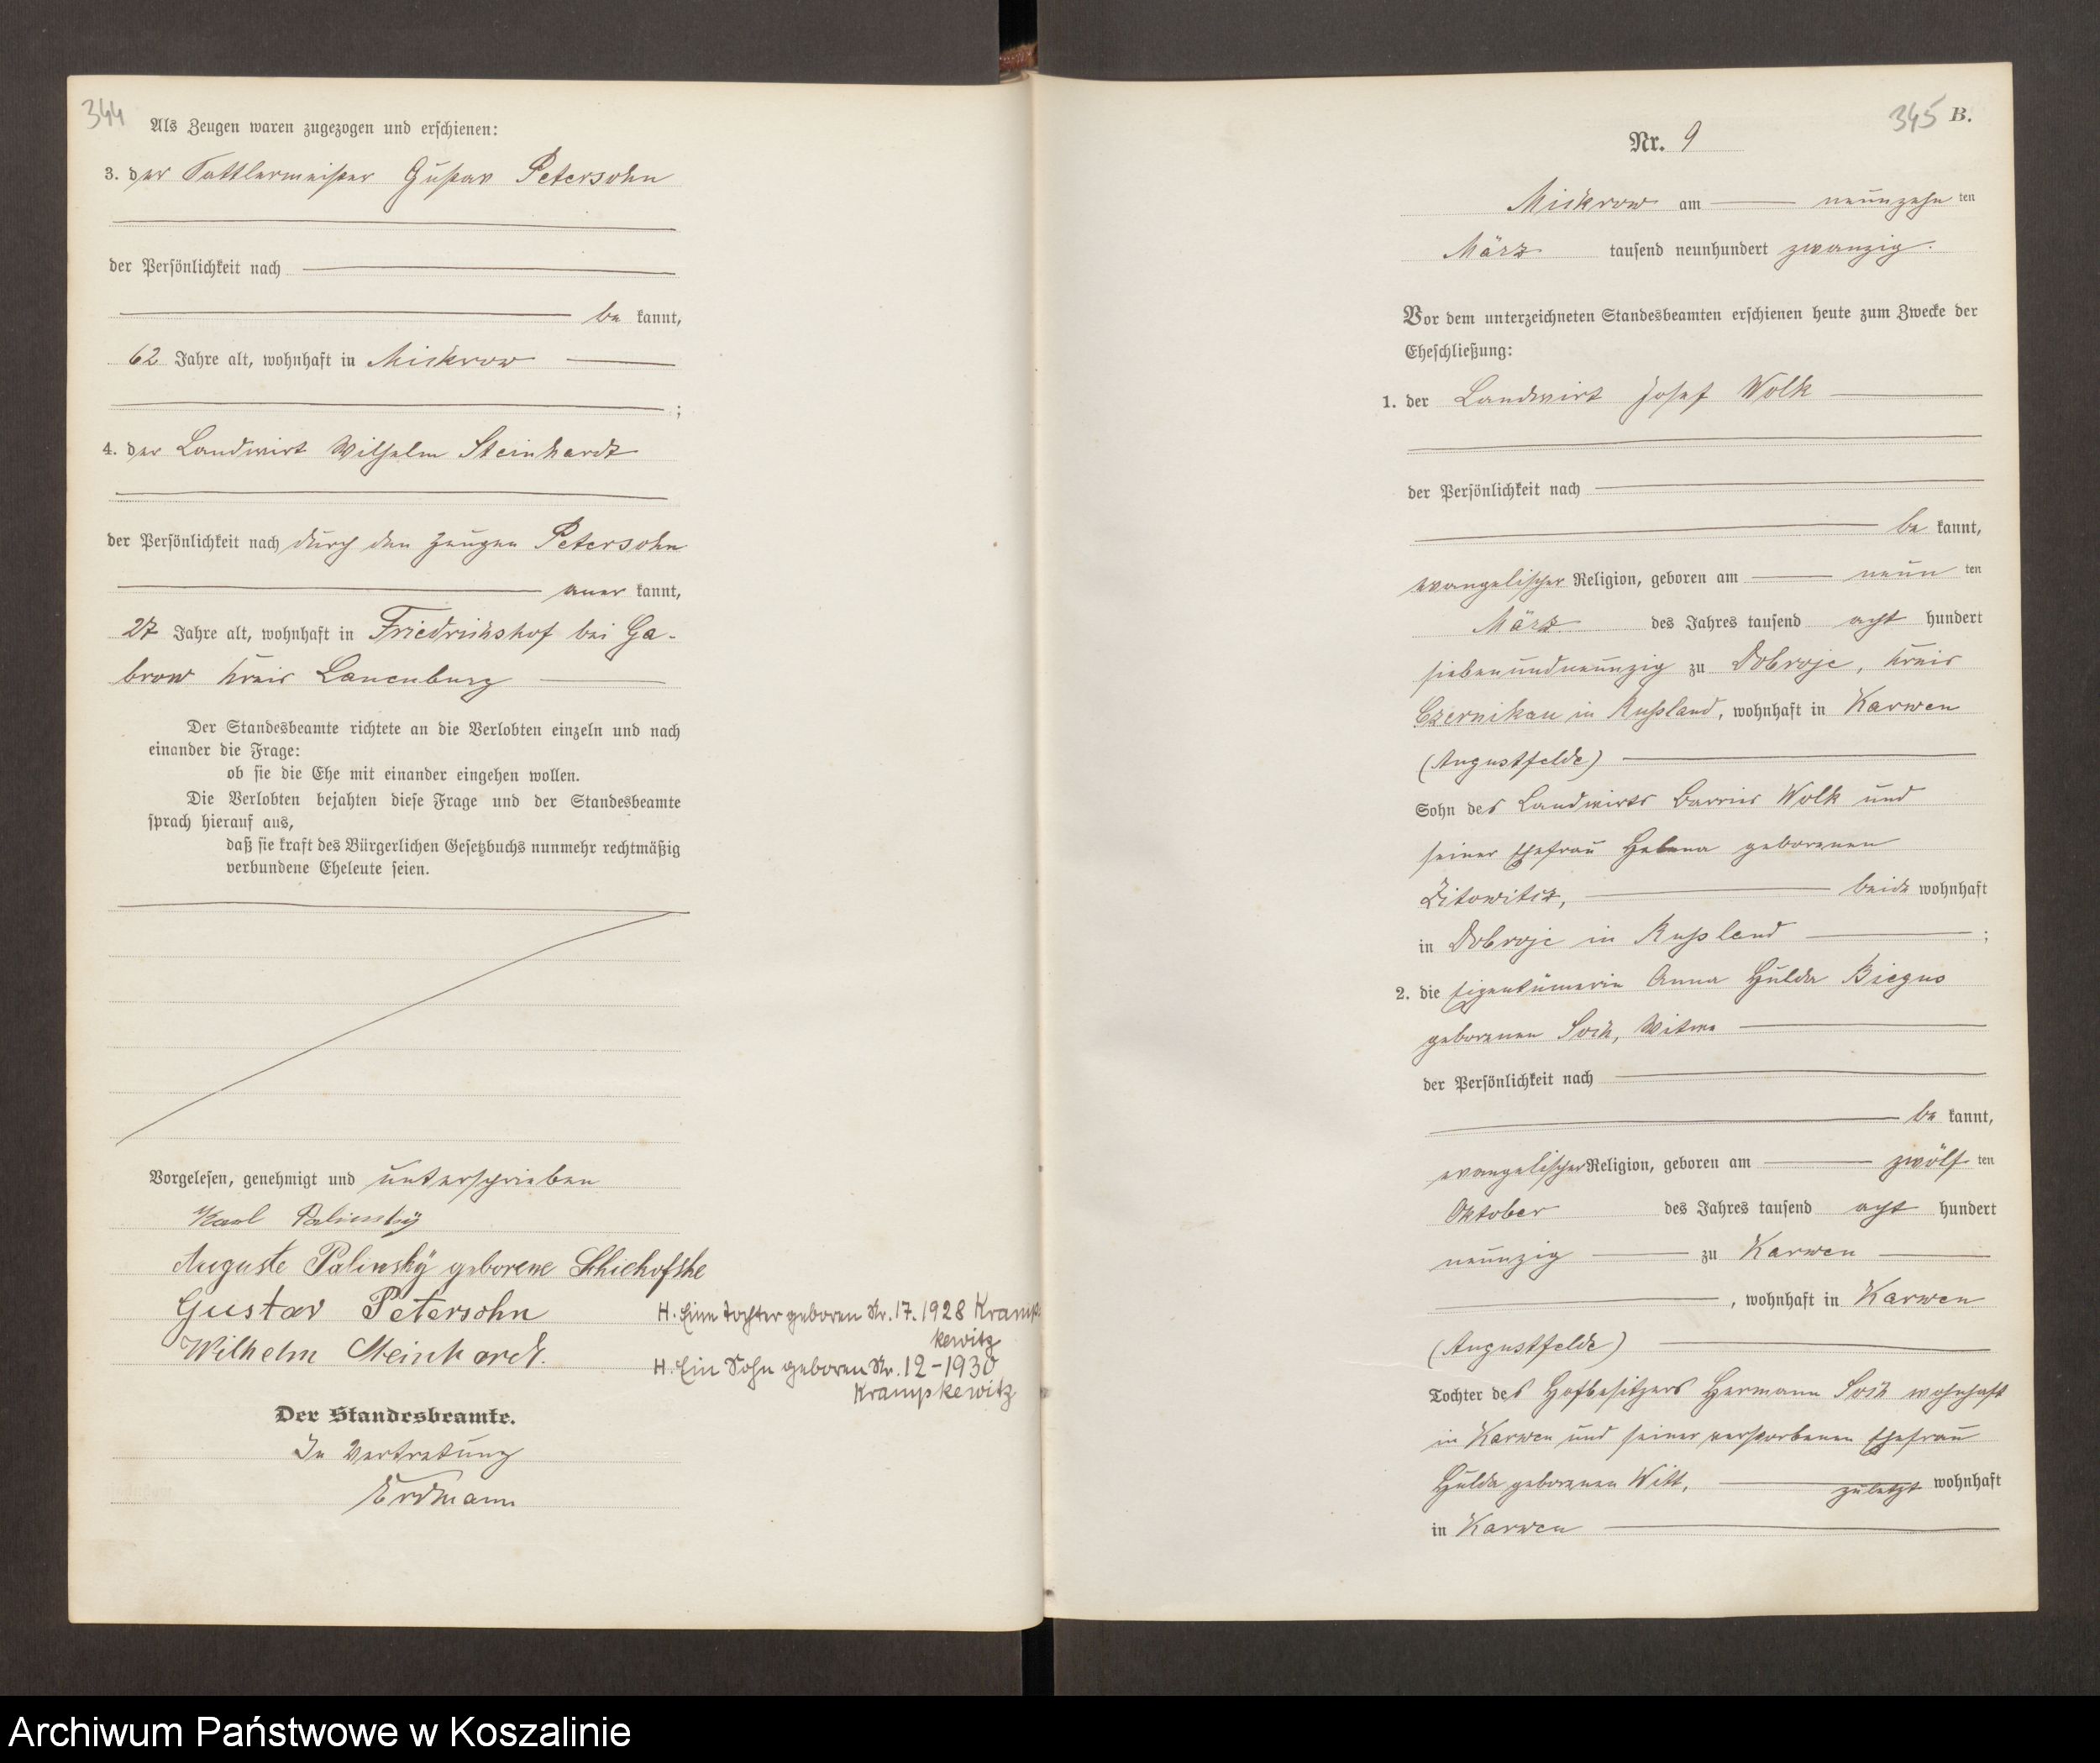 344
Als Zeugen waren zugezogen und erschienen:
3. der Sattlermeister Gustav Petersohn
der Persönlichkeit nach
be kannt,
62 Jahre alt, wohnhaft in Mickrow
;
4. der Landwirt Wilhelm Steinhardt
der Persönlichkeit nach durch den Zeugen Petersohn
aner kannt,
27 Jahre alt, wohnhaft in Friedrichshof bei Ga-
brow Kreis Lauenburg
Der Standesbeamte richtete an die Verlobten einzeln und nach
einander die Frage:
ob sie die Ehe mit einander eingehen wollen.
Die Verlobten bejahten diese Frage und der Standesbeamte
sprach hierauf aus,
daß sie kraft des Bürgerlichen Gesetzbuchs nunmehr rechtmäßig
verbundene Eheleute seien.
Vorgelesen, genehmigt und unterschrieben
Karl Palinsky
Auguste Palinsky geborene
Gustav Petersohn
Wilhelm Steinhardt.
H. Eine Tochter geboren Nr. 17. 1928 Kramp
kewitz
H. Ein Sohn geboren Nr. 12-1930
Krampkewitz
Der Standesbeamte.
In Vertretung
Erdmann
345 B.
Nr. 9
Mickrow am neunzehn ten
März tausend neunhundert zwanzig.
Vor dem unterzeichneten Standesbeamten erschienen heute zum Zwecke der
Eheschließung:
1. der Landwirt Josef Wolk
der Persönlichkeit nach
be kannt,
evangelischer Religion, geboren am neun ten
März des Jahres tausend acht hundert
siebenundneunzig zu Dobroje, Kreis
Czernikau in Russland, wohnhaft in Karwen
(Augustfelde)
Sohn des Landwirts Wolk und
seiner Ehefrau Helena geborenen
beide wohnhaft
in Dobroje in Russland ;
2. die Eigentümerin Anna Hulda Biegus
geborenen Sock, Witwe
der Persönlichkeit nach
be kannt,
evangelischer Religion, geboren am zwölf ten
Oktober des Jahres tausend acht hundert
neunzig zu Karwen
, wohnhaft in Karwen
(Augustfelde)
Tochter des Hofbesitzers Hermann Sock wohnhaft
in Karwen und seiner verstorbenen Ehefrau
Hulda geborenen Witt, zuletzt wohnhaft
in Karwen
Archiwum Państwowe w Koszalinie